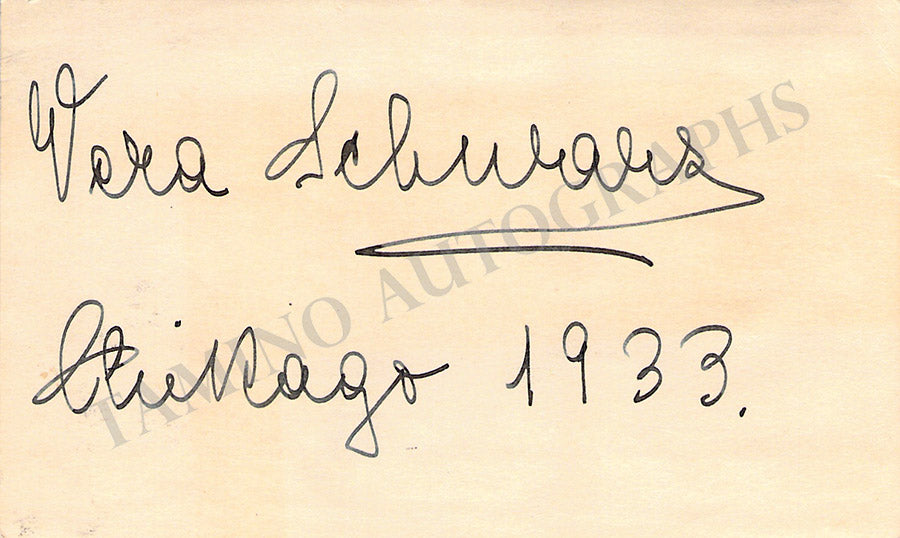 Vera Schwarz
Chikago 1933.
TAMINO AUTOGRAPHS